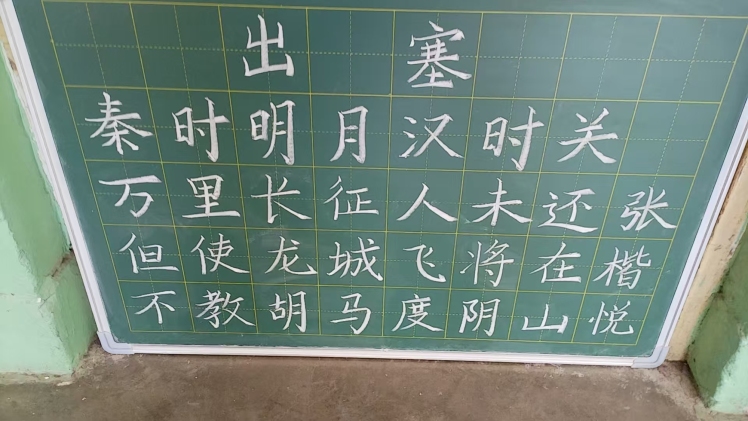 出塞
秦时明月汉时关
万里长征人未还张
但使龙城飞将在楷
不教胡马度阴山悦